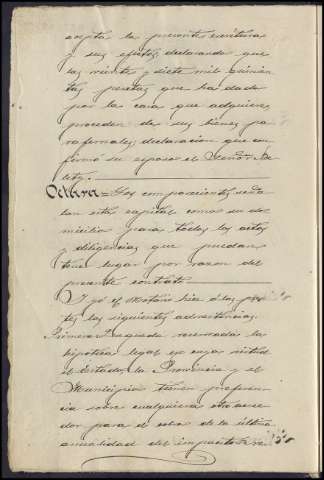 acepta la presente escritura
y sus efectos, declarando que
las veinte y siete mil quinien
tas pesetas que ha dado
por la casa que adquiere
proceden de sus bienes pa
rafernales; declaracion que con
firmó su esposo el Señor
Octava = Los comparecientes seña
lan esta capital como su do
micilio para todos los actos
y diligencias que puedan
tener lugar por razon del
presente contrato.
Y yo el Notario hice á las par
tes las siguientes advertencias.
Primera: queda reservada la
hipoteca legal en cuya virtud
el Estado, la Provincia y el
Municipio tienen preferen
cia sobre cualquiera otro acree
dor para el cobro de la última
anualidad del impuesto